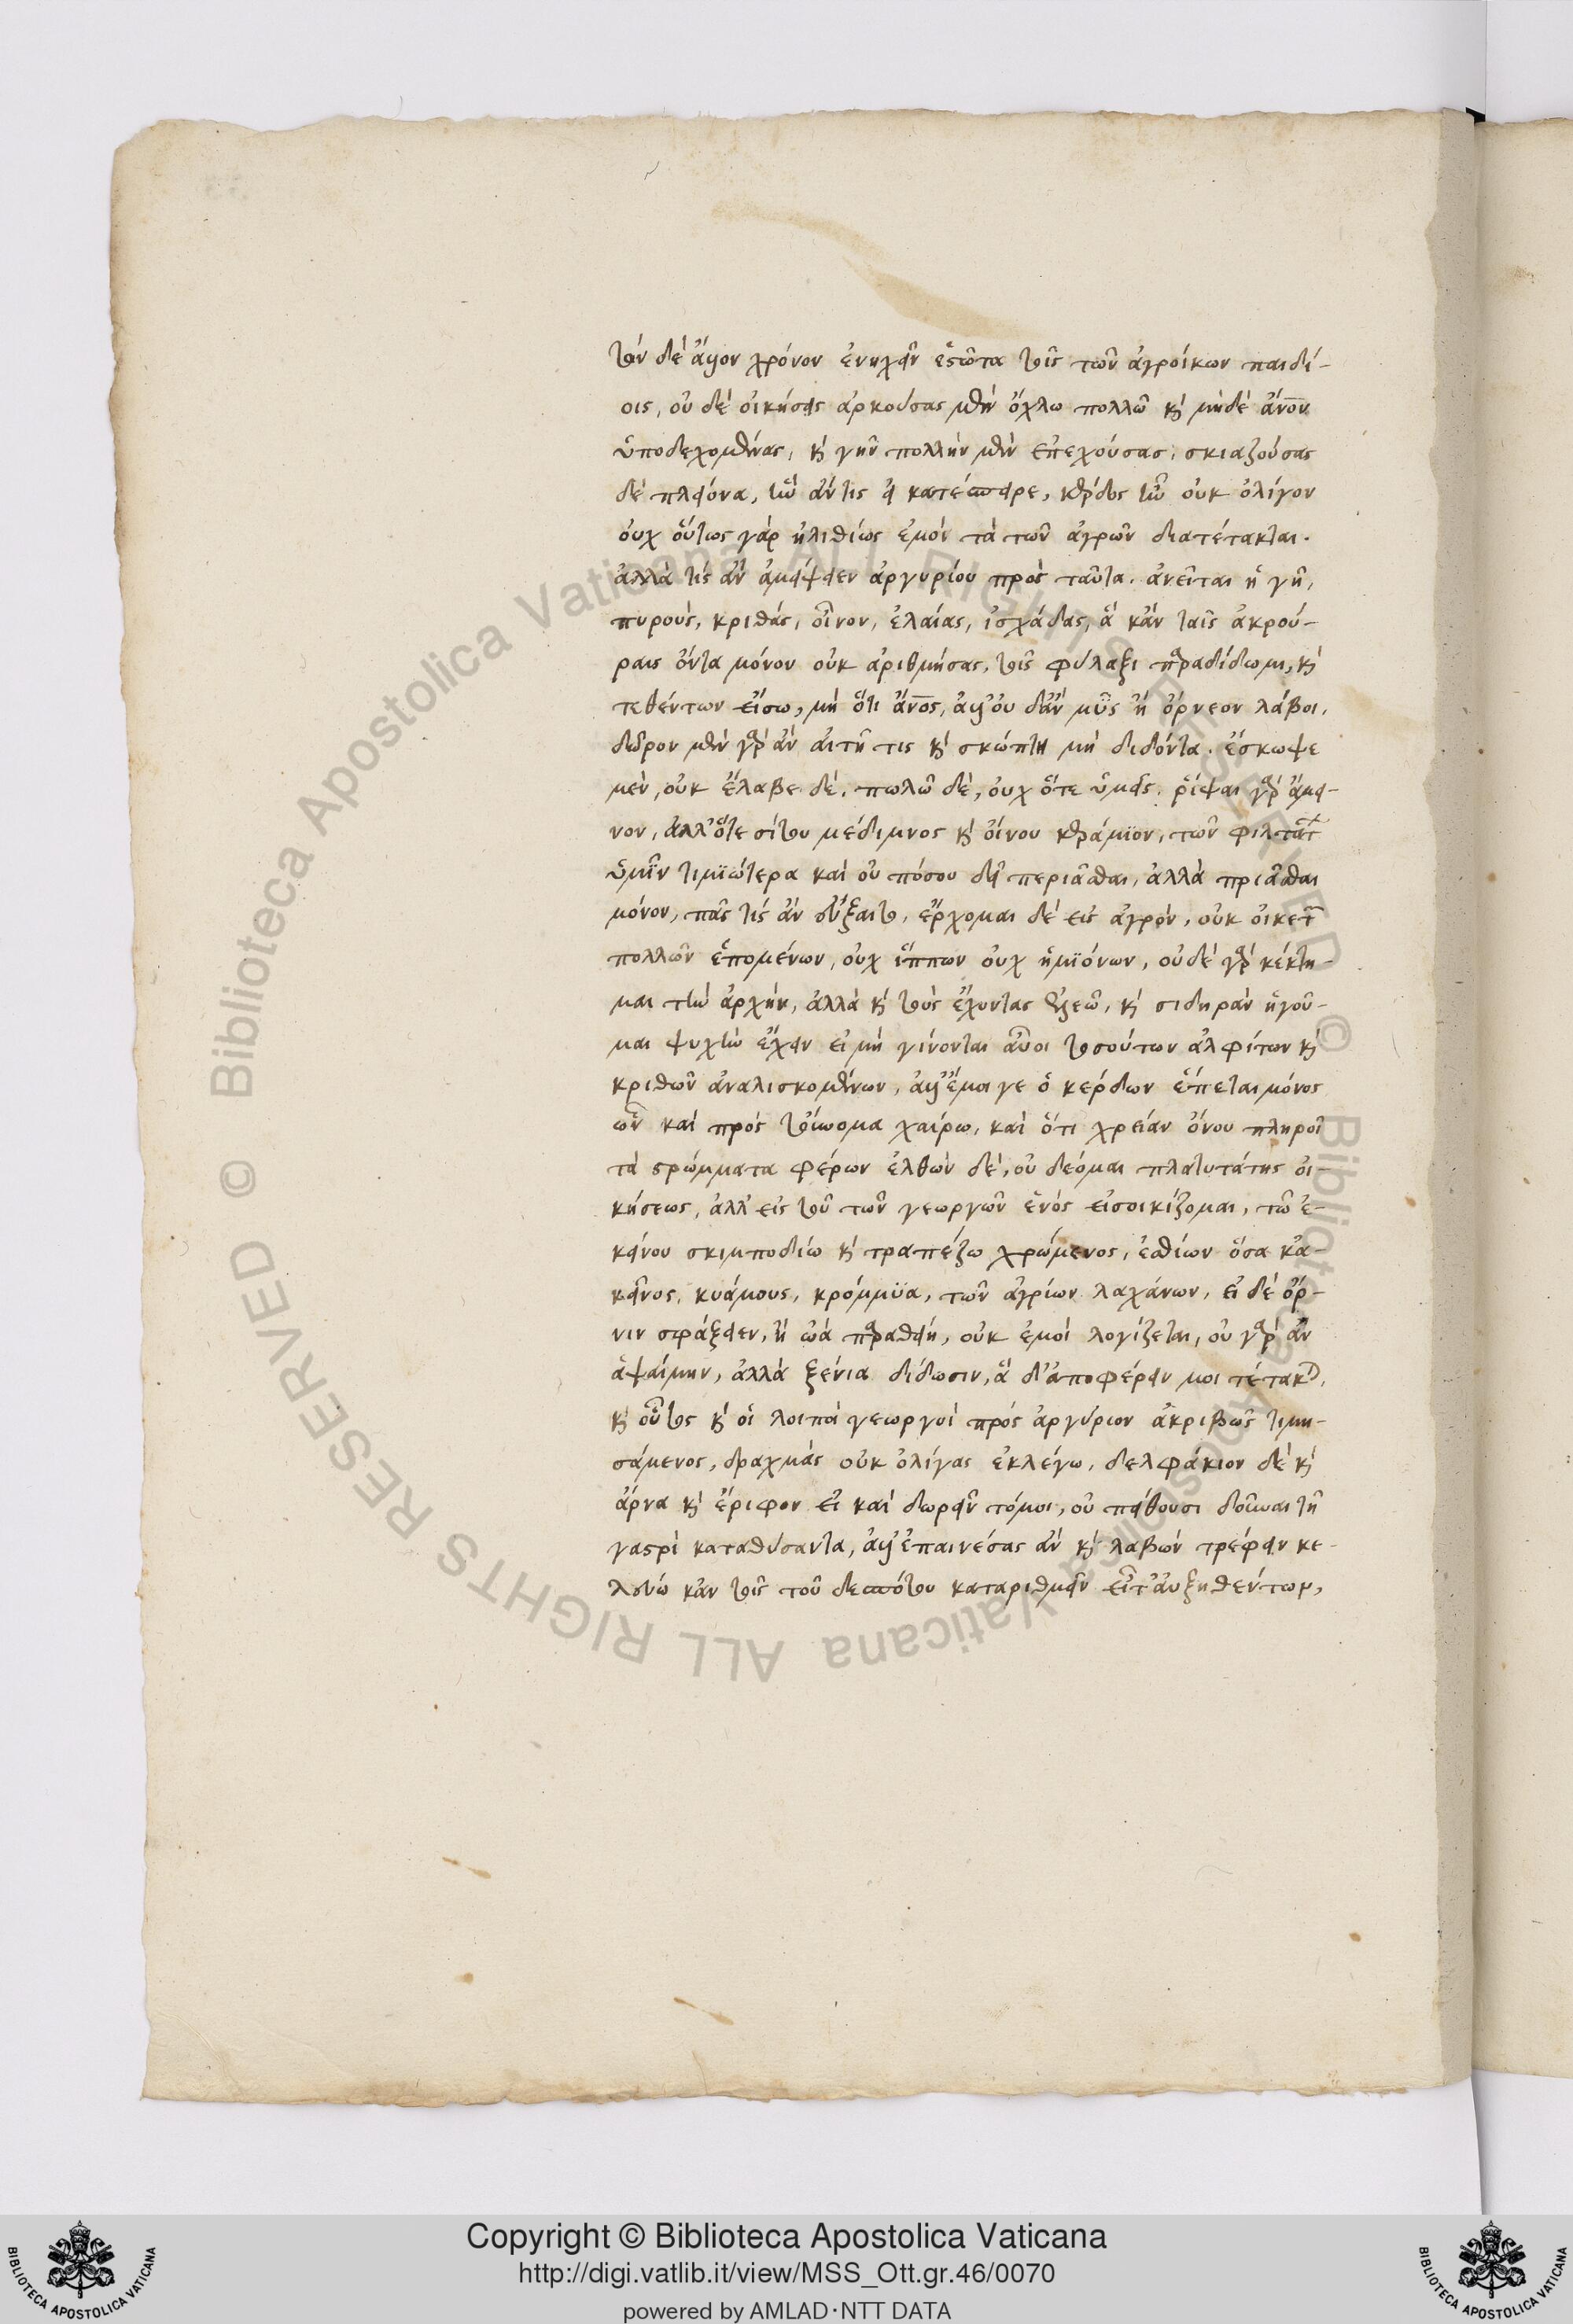 τὸν δὲ ἄλλον χρόνον ἐνηχεῖν ἑστῶτα τοῖς τῶν ἀγροίκων παιδί-
οις, οὐ δὲ οἰκήσεις ἀρκούσας μὲν ὄχλω πολλῶ κὶ μηδὲ ἄνον
ὑποδεχομένας, κὶ γῆν πολλὴν μὲν ἐπεχούσας, σκιαζούσας
δὲ πλείονα, ἣν ἄν τις εἰ κατέσπειρε, κέρδος ἦν οὐκ ὀλίγον
οὐχ οὕτως γὰρ ἠλιθίως ἐμοὶ τὰ τῶν ἀγρῶν διατέτακται.
ἀλλὰ τίς ἂν ἀμείψειεν ἀργυρίου πρὸς ταῦτα. ἀνεῖται ἡ γῆ,
πυροὺς, κριθὰς, οἶνον, ἐλαίας, ἰσχάδας, ἃ κἂν ταῖς ἀκρού-
ραις ὄντα μόνον οὐκ ἀριθμήσας, τοῖς φύλαξι παραδίδωμι, κὶ
τεθέντων εἴσω, μὴ ὅτι ἄνος, ἀλλ' οὐ δ' ἂν μῦς ἢ ὄρνεον λάβοι.
δῶρον μὲν γὰρ ἂν αἰτῆ τις κὶ σκώπτη μὴ διδόντα. ἔσκωψε
μὲν, οὐκ ἔλαβε δέ. πωλῶ δὲ, οὐχ ὅτε ὑμεῖς. ῥίψαι γὰρ ἄμει-
νον, ἀλλ' ὅτε σίτου μέδιμνος κὶ οἴνου κεράμϊον, τῶν φιλτάτ
ὑμῖν τιμϊώτερα καὶ οὐ πόσου δεῖ περιᾶσθαι, ἀλλὰ πριᾶσθαι
μόνον, πᾶς τίς ἂν εὔξαιτο, ἔρχομαι δὲ εἰς ἀγρὸν, οὐκ οἰκετ
πολλῶν ἑπομένων, οὐχ ἵππων οὐχ ἡμϊόνων, οὐδὲ γὰρ κέκτη-
μαι τὴν ἀρχὴν, ἀλλὰ κὶ τοὺς ἔχοντας ἐλεῶ, κὶ σιδηρὰν ἡγοῦ-
μαι ψυχὴν ἔχειν εἰ μὴ γίνονται αὖοι τοσούτων ἀλφίτων κὶ
κριθῶν ἀναλισκομένων, ἀλλ' ἔμοιγε ὁ κέρδων ἕπεται μόνος
ὧν καὶ πρὸς τοὔνομα χαίρω, καὶ ὅτι χρείαν ὄνου πληροῖ
τὰ στρώμματα φέρων ἐλθὼν δὲ, οὐ δεόμαι πλατυτάτης οἰ-
κήσεως, ἀλλ' εἰς τοῦ τῶν γεωργῶν ἑνὸς εἰσοικίζομαι, τῶ ἐ-
κείνου σκιμποδίω κὶ τραπέζω χρώμενος, ἐσθίων ὅσα κἀ-
κεῖνος, κυάμους, κρόμμϋα, τῶν ἀγρίων λαχάνων, εἰ δὲ ὄρ-
νιν σφάξειεν, ἢ ὠὰ παραθείη, οὐκ ἐμοὶ λογίζεται, οὐ γὰρ ἂν
ἁψαίμην, ἀλλὰ ξένια δίδωσιν, ἃ δι' ἀποφέρειν μοι τέτακ,
κὶ οὗτος κὶ οἱ λοιποὶ γεωργοὶ πρὸς ἀργύριον ἀκριβῶς τιμη-
σάμενος, δραχμὰς οὐκ ὀλίγας ἐκλέγω, δελφάκιον δὲ κὶ
ἄρνα κὶ ἔριφον εἰ καὶ δωρεῖν τόμοι, οὐ πείθουσι δοῦναι τῆ
γαστρὶ καταθύσαντα, ἀλλ' ἐπαινέσας ἂν κὶ λαβὼν τρέφειν κε-
λεύω κἂν τοῖς τοῦ δεσπότου καταριθμεῖν εἶτ' αὐξηθέντων,
Copyright © Biblioteca Apostolica Vaticana
http://digi.vatlib.it/view/MSS_Ott.gr.46/0070
powered by AMLAD·NTT DATA